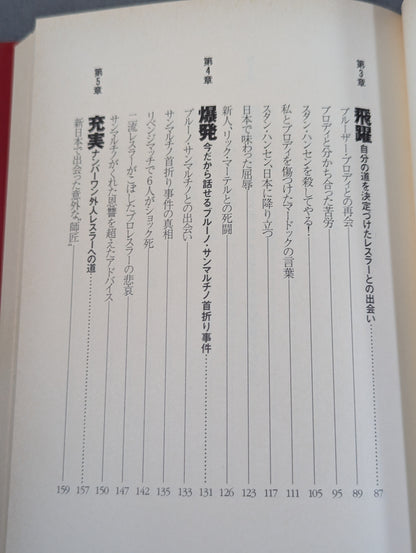 第3章 飛躍 自分の道を決定づけたレスラーとの出会い……87
ブルーザー・ブロディとの再会 89
ブロディと分かち合った苦労 95
スタン・ハンセンを殺してやる! 105
私とブロディを傷つけたマードックの言葉 111
スタン・ハンセン、日本に降り立つ 117
日本で味わった屈辱 123
新人、リック・マーテルとの死闘 126
第4章 爆発 今だから話せるブルーノ・サンマルチノ首折り事件……131
ブルーノ・サンマルチノとの出会い 133
サンマルチノ首折り事件の真相 135
リベンジマッチで6人がショック死 142
二流レスラーがこぼしたプロレスラーの悲哀 147
サンマルチノがくれた恩讐を超えたアドバイス 150
第5章 充実 ナンバーワン外人レスラーへの道……157
新日本で出会った意外な“師匠” 159